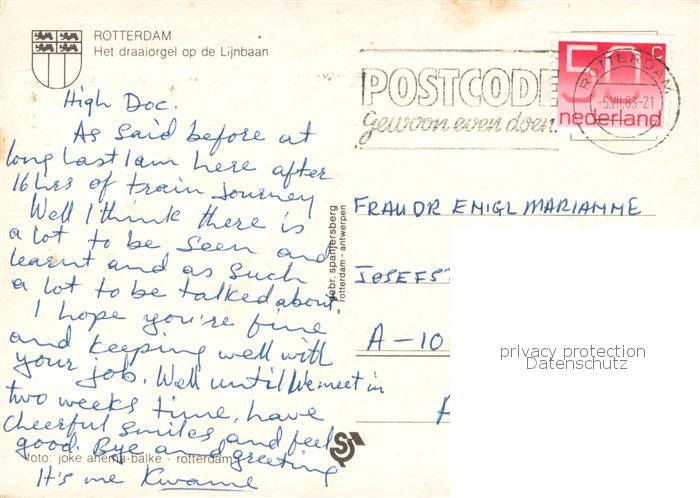 ROTTERDAM
Het draaiorgel op de Lijnbaan
POSTCODE
gewoon even doen.
ROTTERDAM
-5.VII.83-21
50c
nederland
High Doc.
As said before at
long last I am here after
16 hrs of train Journey
Well I think there is
a lot to be seen and
learnt and as such
a lot to be talked about.
I hope you're fine
and keeping well with
your job. Well until We meet in
two weeks time, have
cheerful smiles and feel
good. Bye and greeting
It's me Kwame
foto: joke anema-balke - rotterdam
gebr. spanjersberg
rotterdam - antwerpen
FRAU DR ENIGL MARIAMME
JOSEFS
A-10
privacy protection
Datenschutz